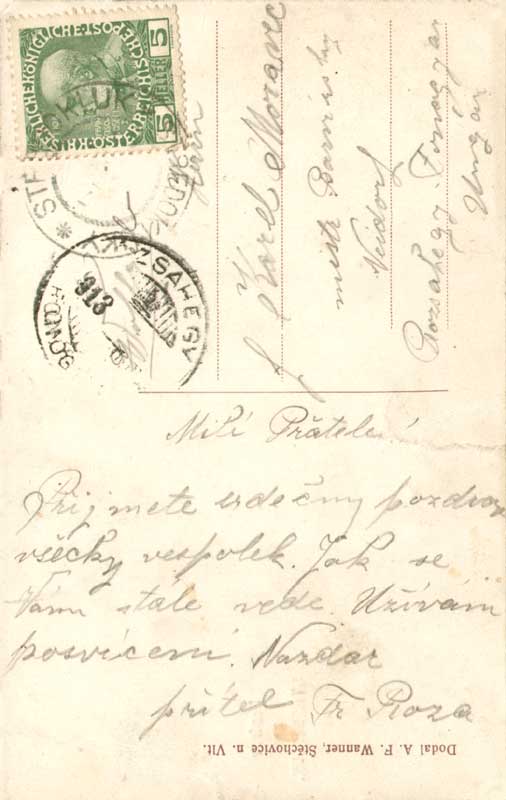 KAISERLICHE KÖNIGLICHE ÖSTERREICHISCHE POST
5 HELLER 5
ROZSAHEGY
913
Karel Moravec
Neidorf
Rozsahegy
Milí Přátelé!
Přijmete srdečny pozdrav
všecky vespolek. Jak se
Vám stale vede. Užívám
posvícení. Nazdar
přítel Fr Roza
Dodal A. F. Wanner, Štěchovice n. Vlt.